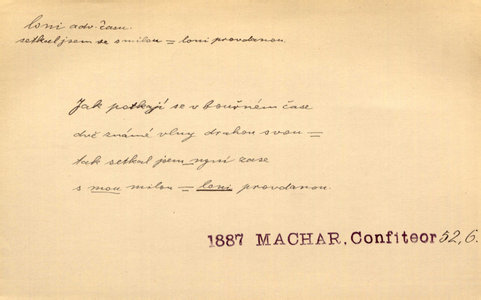 loni adv. času
setkal jsem se s milou = loni provdanou.
Jak potkají se v bouřném čase
dvě známé vlny drahou svou =
tak setkal jsem nyní zase
s mou milou = loni provdanou.
1887 MACHAR, Confiteor 52, 6.